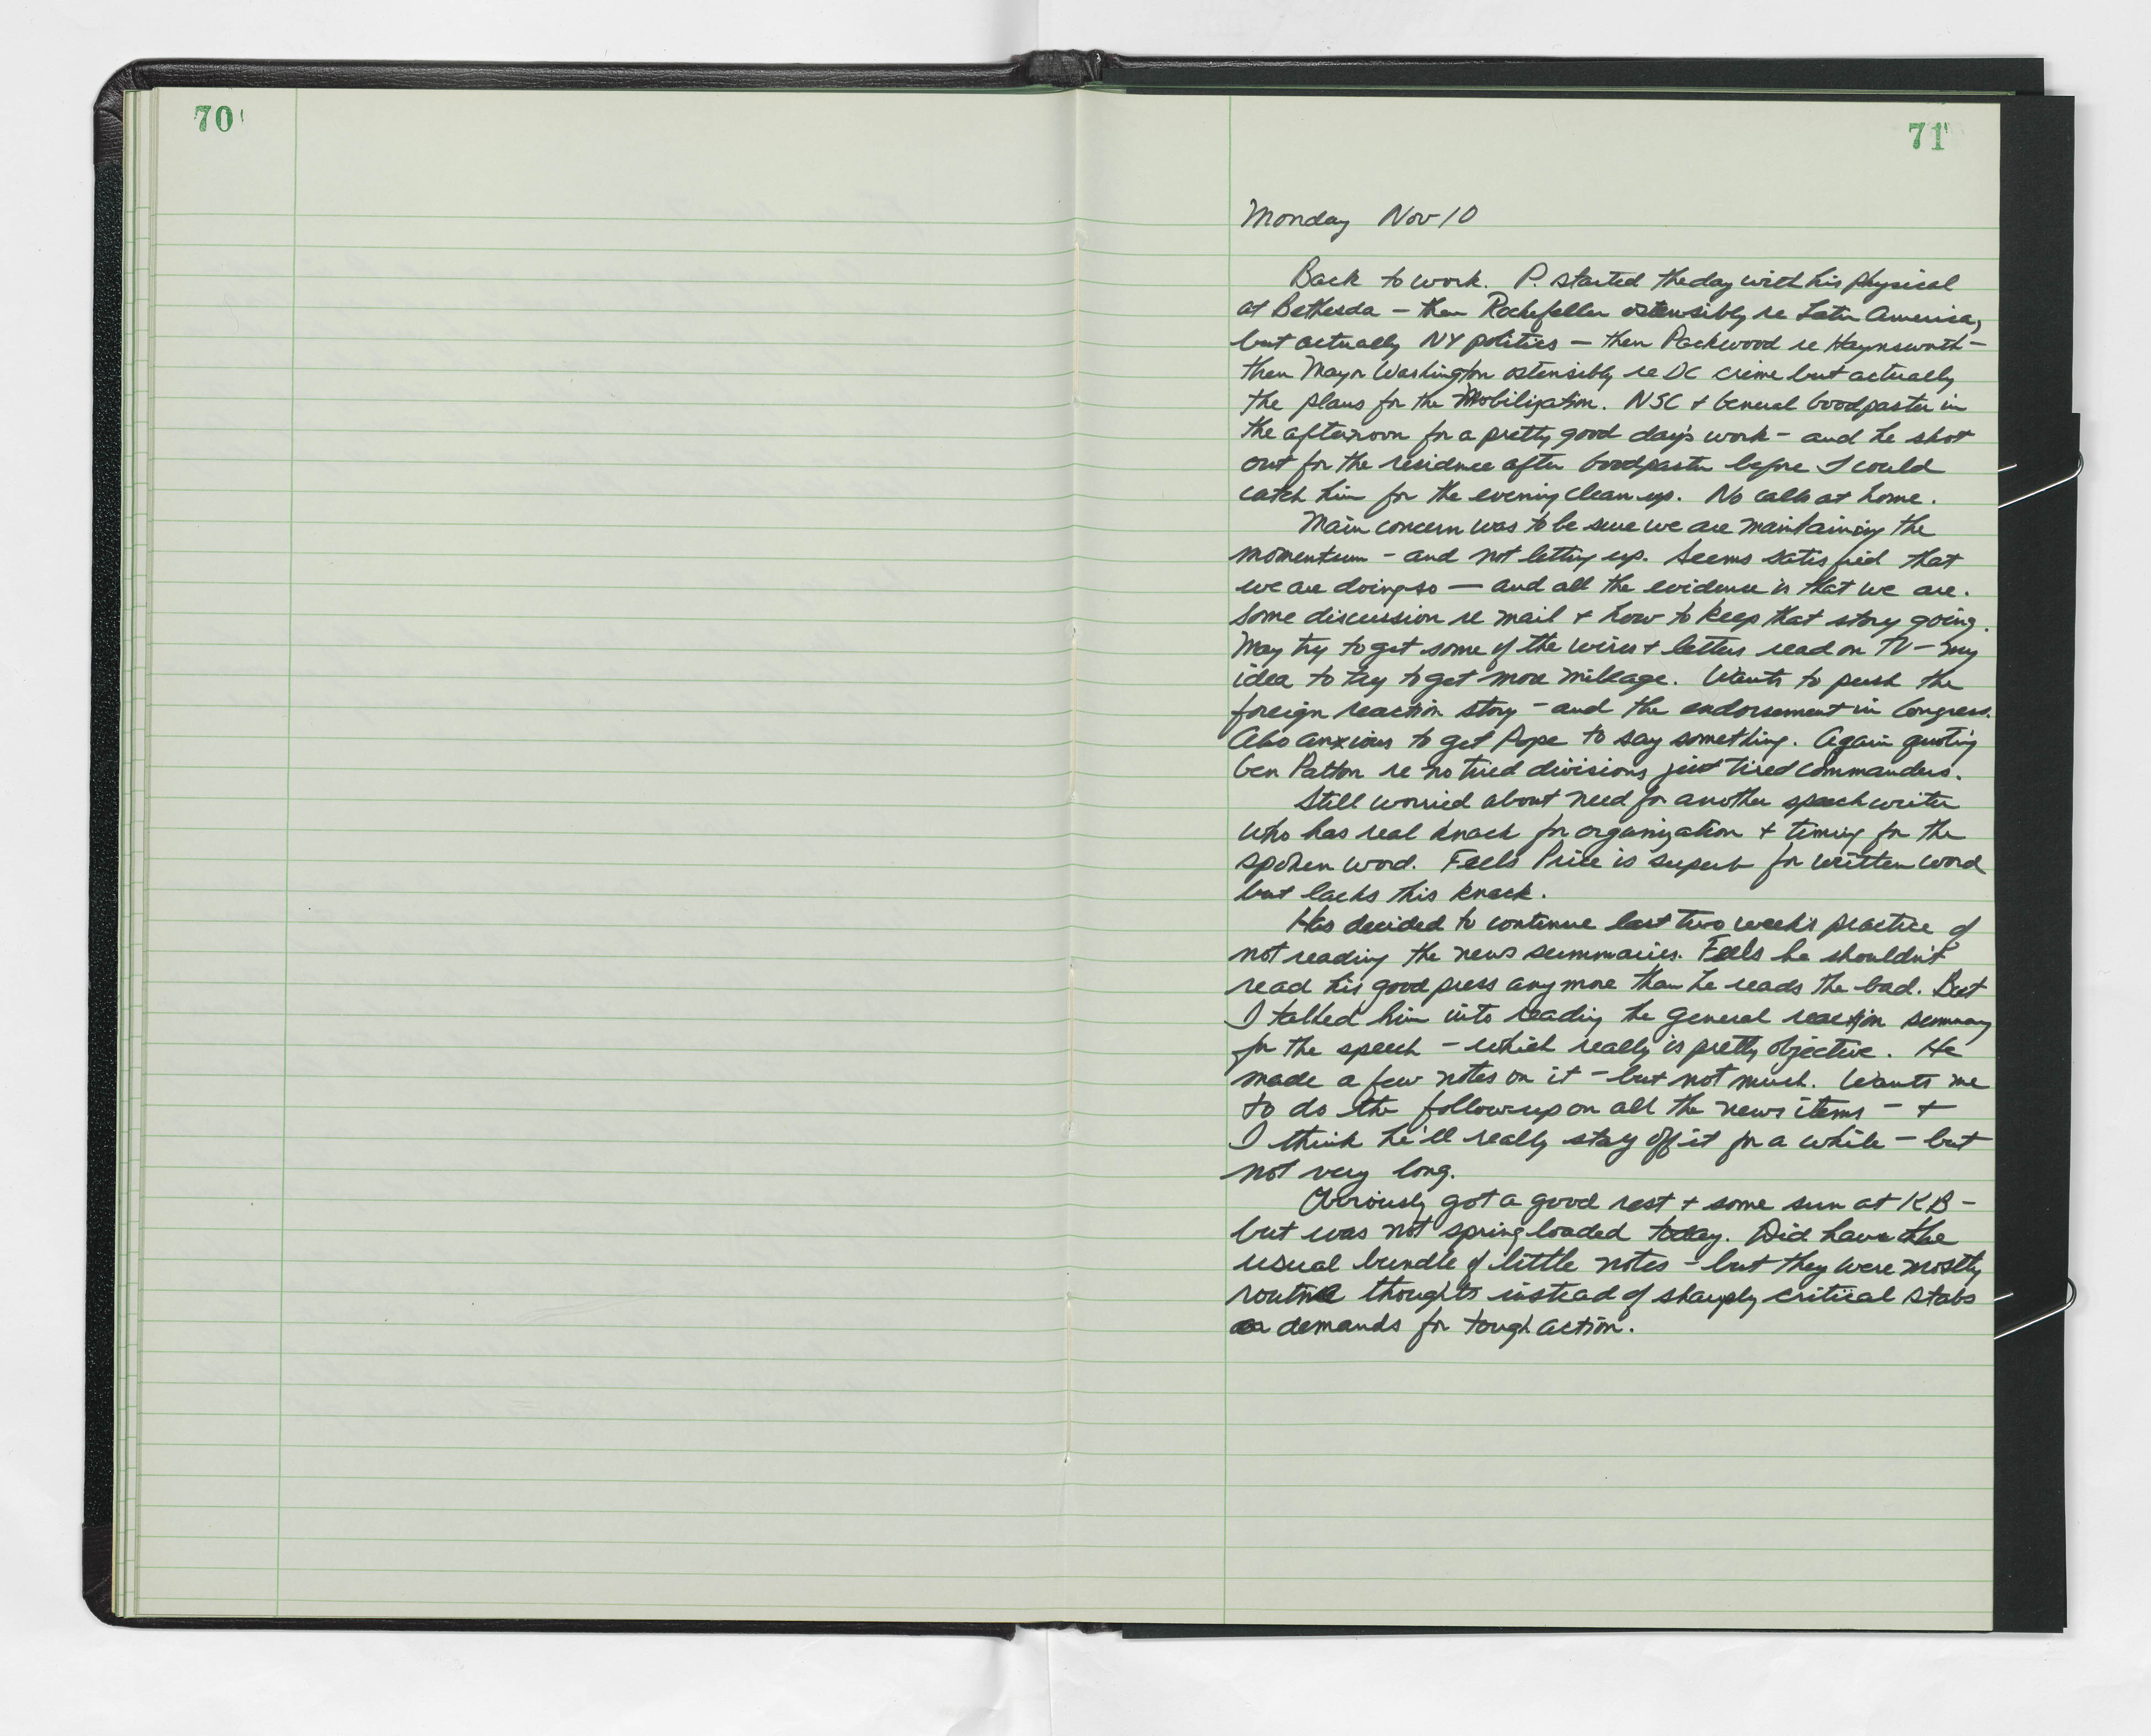 70
71
Monday Nov 10
Back to work. P. started the day with his physical
at Bethesda — then Rockefeller ostensibly re Latin America,
but actually NY politics — then Packwood re Haynsworth —
then Mayor Washington ostensibly re DC crime but actually
the plans for the Mobilization. NSC + General Goodpaster in
the afternoon for a pretty good day's work - and he shot
out for the residence after Goodpaster before I could
catch him for the evening clean-up. No calls at home.
Main concern was to be sure we are maintaining the
momentum - and not letting up. Seems satisfied that
we are doing so — and all the evidence is that we are.
Some discussion re mail + how to keep that story going.
May try to get some of the wires + letters read on TV - my
idea to try to get more mileage. Wants to push the
foreign reaction story - and the endorsement in Congress.
Also anxious to get Pope to say something. Again quoting
Gen Patton re no tired divisions just tired commanders.
Still worried about need for another speech writer
who has real knack for organization + timing for the
spoken word. Feels Price is superb for written word
but lacks this knack.
Has decided to continue last two week's practice of
not reading the news summaries. Feels he shouldn't
read his good press any more than he reads the bad. But
I talked him into reading the general reaction summary
for the speech - which really is pretty objective. He
made a few notes on it - but not much. Wants me
to do the follow-up on all the news items - +
I think he'll really stay off it for a while - but
not very long.
Obviously got a good rest + some sun at KB -
but was not spring loaded today. Did have the
usual bundle of little notes - but they were mostly
routine thoughts instead of sharply critical stabs
or demands for tough action.